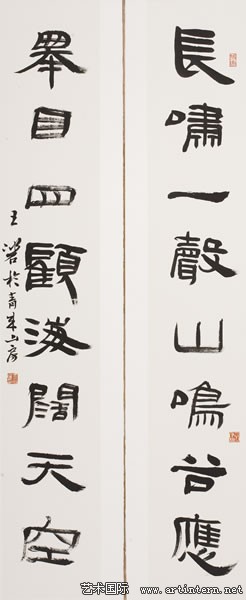 長嘯一聲山鳴谷應
舉目四顧海闊天空
王鏞於青年山房
艺术国际 · www.artintern.net